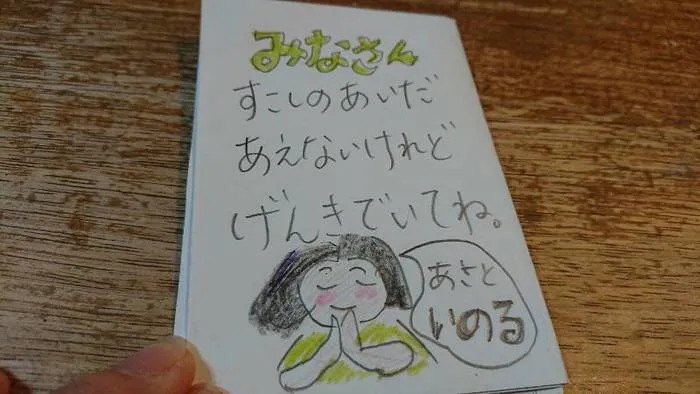 みなさん
すこしのあいだ
あえないけれど
げんきでいてね。
あさと
いのる